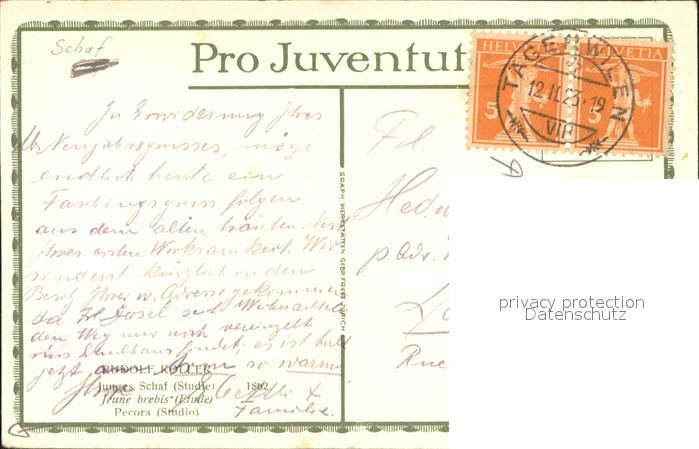 Schaf
Pro Juventut
HELVETIA HELVETIA
5 5
TÄGERWILEN
12.II.23.19
VIII
In Erwiderung Ihres
Neujahrsgrusses, möge
endlich heute ein
Faschingsgruss folgen
aus dem alten trauten Nest
Ihres ersten Wirkens
sind erst kürzlich in den
Besitz Ihrer w. Adresse gekommen
da Frl. seit Weihnachten
den Weg nur noch vereinzelt
ins Schulhaus findet; es ist halt
jetzt so warm
Familie.
RUDOLF KOLLER
Junges Schaf (Studie) 1862
Jeune brebis (Etude)
Pecora (Studio)
GRAPH. WERKSTÄTTEN GEBR. FRETZ ZÜRICH
Frl.
Hedw
p. adr.
Rue
privacy protection
Datenschutz